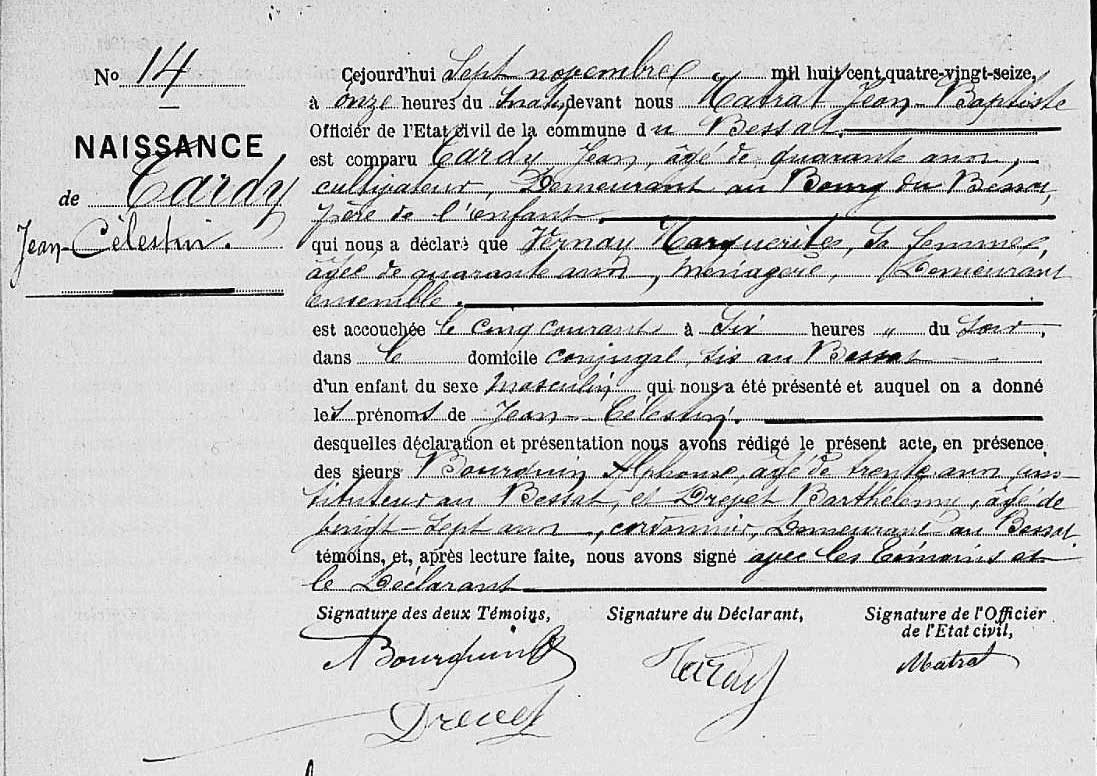 No 14
NAISSANCE
de Tardy
Jean-Célestin.
Cejourd'hui Sept novembre mil huit cent quatre-vingt-seize,
à onze heures du matin devant nous Matrat Jean-Baptiste
Officier de l'Etat civil de la commune du Bessat.
est comparu Tardy Jean, âgé de quarante ans,
cultivateur, Demeurant au Bourg du Bessat,
père de l'enfant
qui nous a déclaré que Vernay Marguerite, sa femme,
âgée de quarante ans, ménagère, Demeurant
ensemble.
est accouchée le cinq courant à six heures „ du soir,
dans le domicile conjugal, sis au Bessat
d'un enfant du sexe masculin, qui nous a été présenté et auquel on a donné
les prénoms de Jean-Célestin.
desquelles déclaration et présentation nous avons rédigé le présent acte, en présence
des sieurs Bourquin Alphonse, âgé de trente ans, ins-
tituteur au Bessat, et Drevet Barthélemy, âgé de
vingt-sept ans, cordonnier, Demeurant au Bessat.
témoins, et, après lecture faite, nous avons signé avec les témoins et
le Déclarant
Signature des deux Témoins, Signature du Déclarant, Signature de l'Officier
de l'Etat civil,
ABourquin Tardy Matrat
Drevet